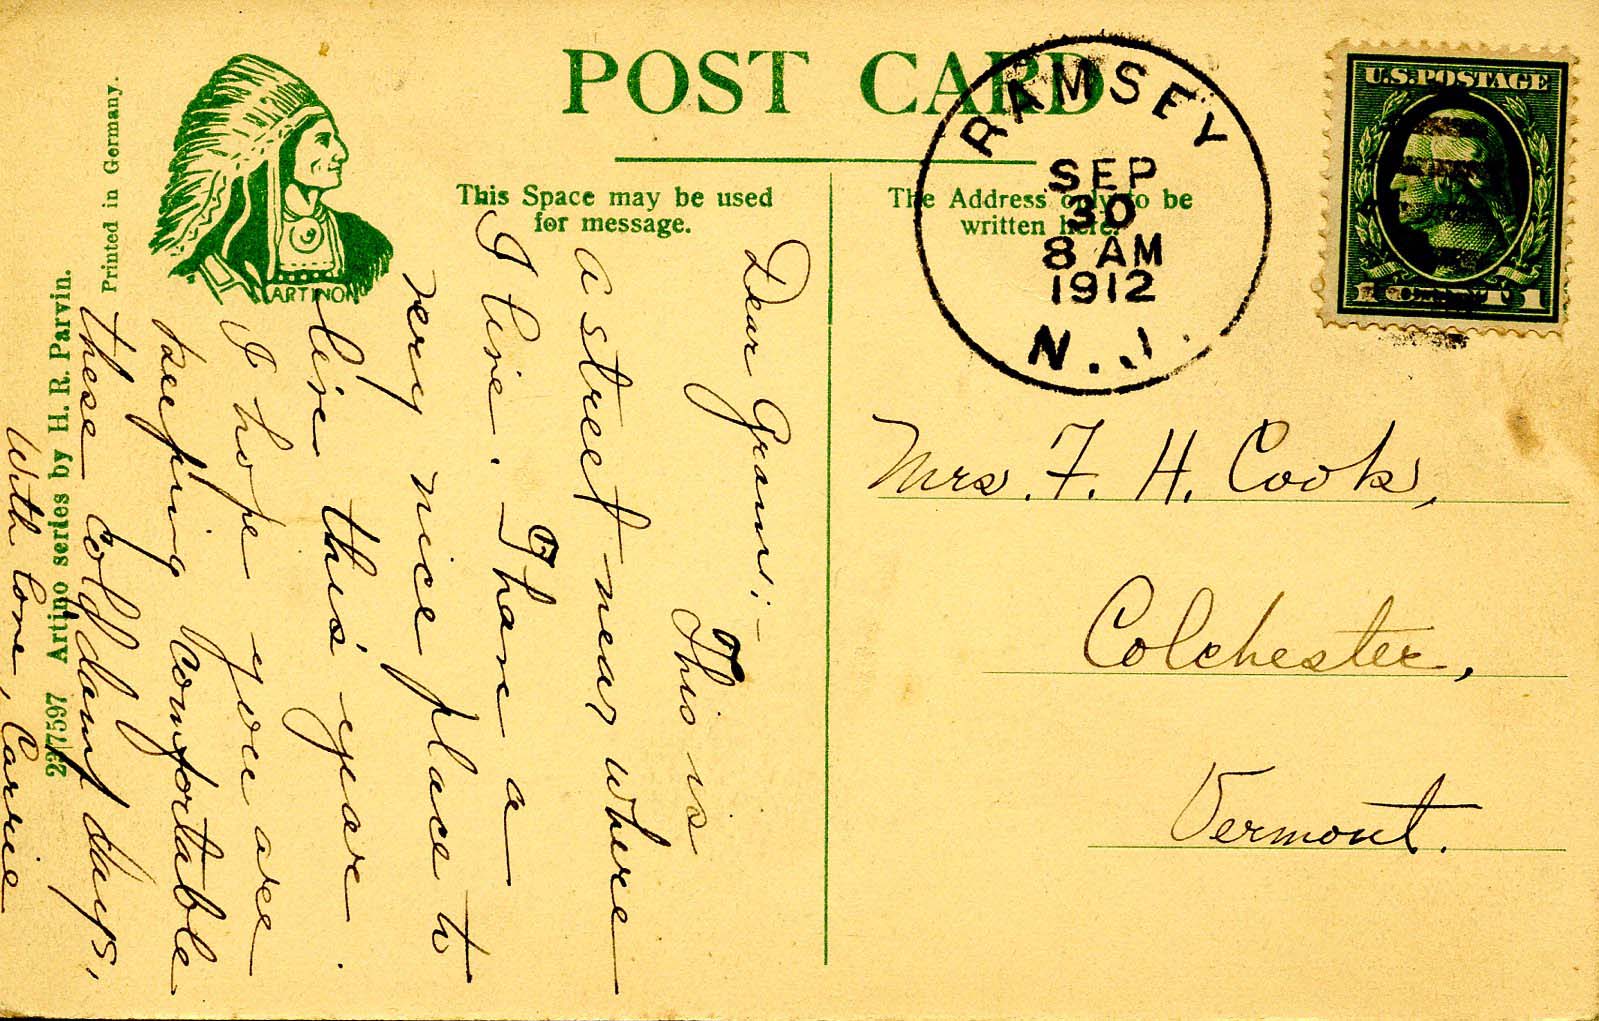 POST CARD
This Space may be used
for message.
The Address only to be
written here.
RAMSEY
SEP
30
8 AM
1912
N.J.
U.S. POSTAGE
1 CENT 1
ARTINO
Printed in Germany.
227597 Artino series by H. R. Parvin.
Dear Gram;-
This is
a street near where
I live. I have a
very nice place to
live this year.
I hope you are
keeping comfortable
these cold damp days.
With love, Carrie
Mrs. F. H. Cook,
Colchester,
Vermont.